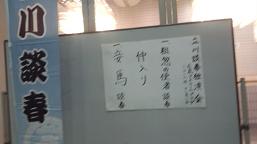 立川談春独演会
一 粗忽の使者 談春
仲入り
一 妾馬 談春
川談春